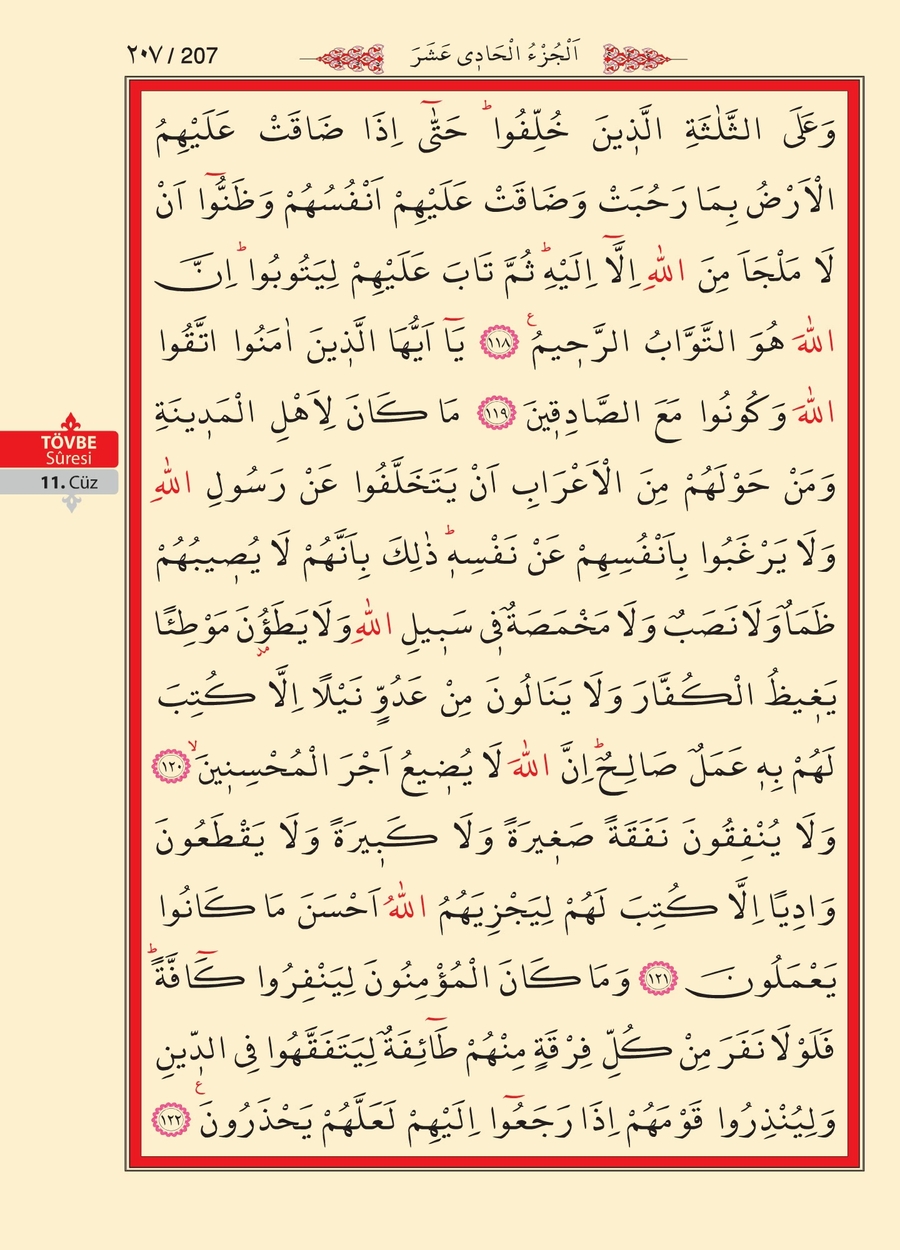 ٢٠٧ / 207
اَلْجُزْءُ الْحَادِى عَشَرَ
وَعَلَى الثَّلٰثَةِ الَّذ۪ينَ خُلِّفُواۜ حَتّٰٓى اِذَا ضَاقَتْ عَلَيْهِمُ
الْاَرْضُ بِمَا رَحُبَتْ وَضَاقَتْ عَلَيْهِمْ اَنْفُسُهُمْ وَظَنُّٓوا اَنْ
لَا مَلْجَاَ مِنَ اللّٰهِ اِلَّٓا اِلَيْهِۜ ثُمَّ تَابَ عَلَيْهِمْ لِيَتُوبُواۜ اِنَّ
اللّٰهَ هُوَ التَّوَّابُ الرَّح۪يمُ۟ ﴿١١٨﴾ يَٓا اَيُّهَا الَّذ۪ينَ اٰمَنُوا اتَّقُوا
اللّٰهَ وَكُونُوا مَعَ الصَّادِق۪ينَ ﴿١١٩﴾ مَا كَانَ لِاَهْلِ الْمَد۪ينَةِ
وَمَنْ حَوْلَهُمْ مِنَ الْاَعْرَابِ اَنْ يَتَخَلَّفُوا عَنْ رَسُولِ اللّٰهِ
وَلَا يَرْغَبُوا بِاَنْفُسِهِمْ عَنْ نَفْسِه۪ۜ ذٰلِكَ بِاَنَّهُمْ لَا يُص۪يبُهُمْ
ظَمَاٌ وَلَا نَصَبٌ وَلَا مَخْمَصَةٌ ف۪ى سَب۪يلِ اللّٰهِ وَلَا يَطَؤُ۫نَ مَوْطِئًا
يَغ۪يظُ الْكُفَّارَ وَلَا يَنَالُونَ مِنْ عَدُوٍّ نَيْلًا اِلَّا كُتِبَ
لَهُمْ بِه۪ عَمَلٌ صَالِحٌۜ اِنَّ اللّٰهَ لَا يُض۪يعُ اَجْرَ الْمُحْسِن۪ينَۙ ﴿١٢٠﴾
وَلَا يُنْفِقُونَ نَفَقَةً صَغ۪يرَةً وَلَا كَب۪يرَةً وَلَا يَقْطَعُونَ
وَادِيًا اِلَّا كُتِبَ لَهُمْ لِيَجْزِيَهُمُ اللّٰهُ اَحْسَنَ مَا كَانُوا
يَعْمَلُونَ ﴿١٢١﴾ وَمَا كَانَ الْمُؤْمِنُونَ لِيَنْفِرُوا كَٓافَّةًۜ
فَلَوْلَا نَفَرَ مِنْ كُلِّ فِرْقَةٍ مِنْهُمْ طَٓائِفَةٌ لِيَتَفَقَّهُوا فِى الدّ۪ينِ
وَلِيُنْذِرُوا قَوْمَهُمْ اِذَا رَجَعُٓوا اِلَيْهِمْ لَعَلَّهُمْ يَحْذَرُونَ۟ ﴿١٢٢﴾
TÖVBE
Sûresi
11. Cüz